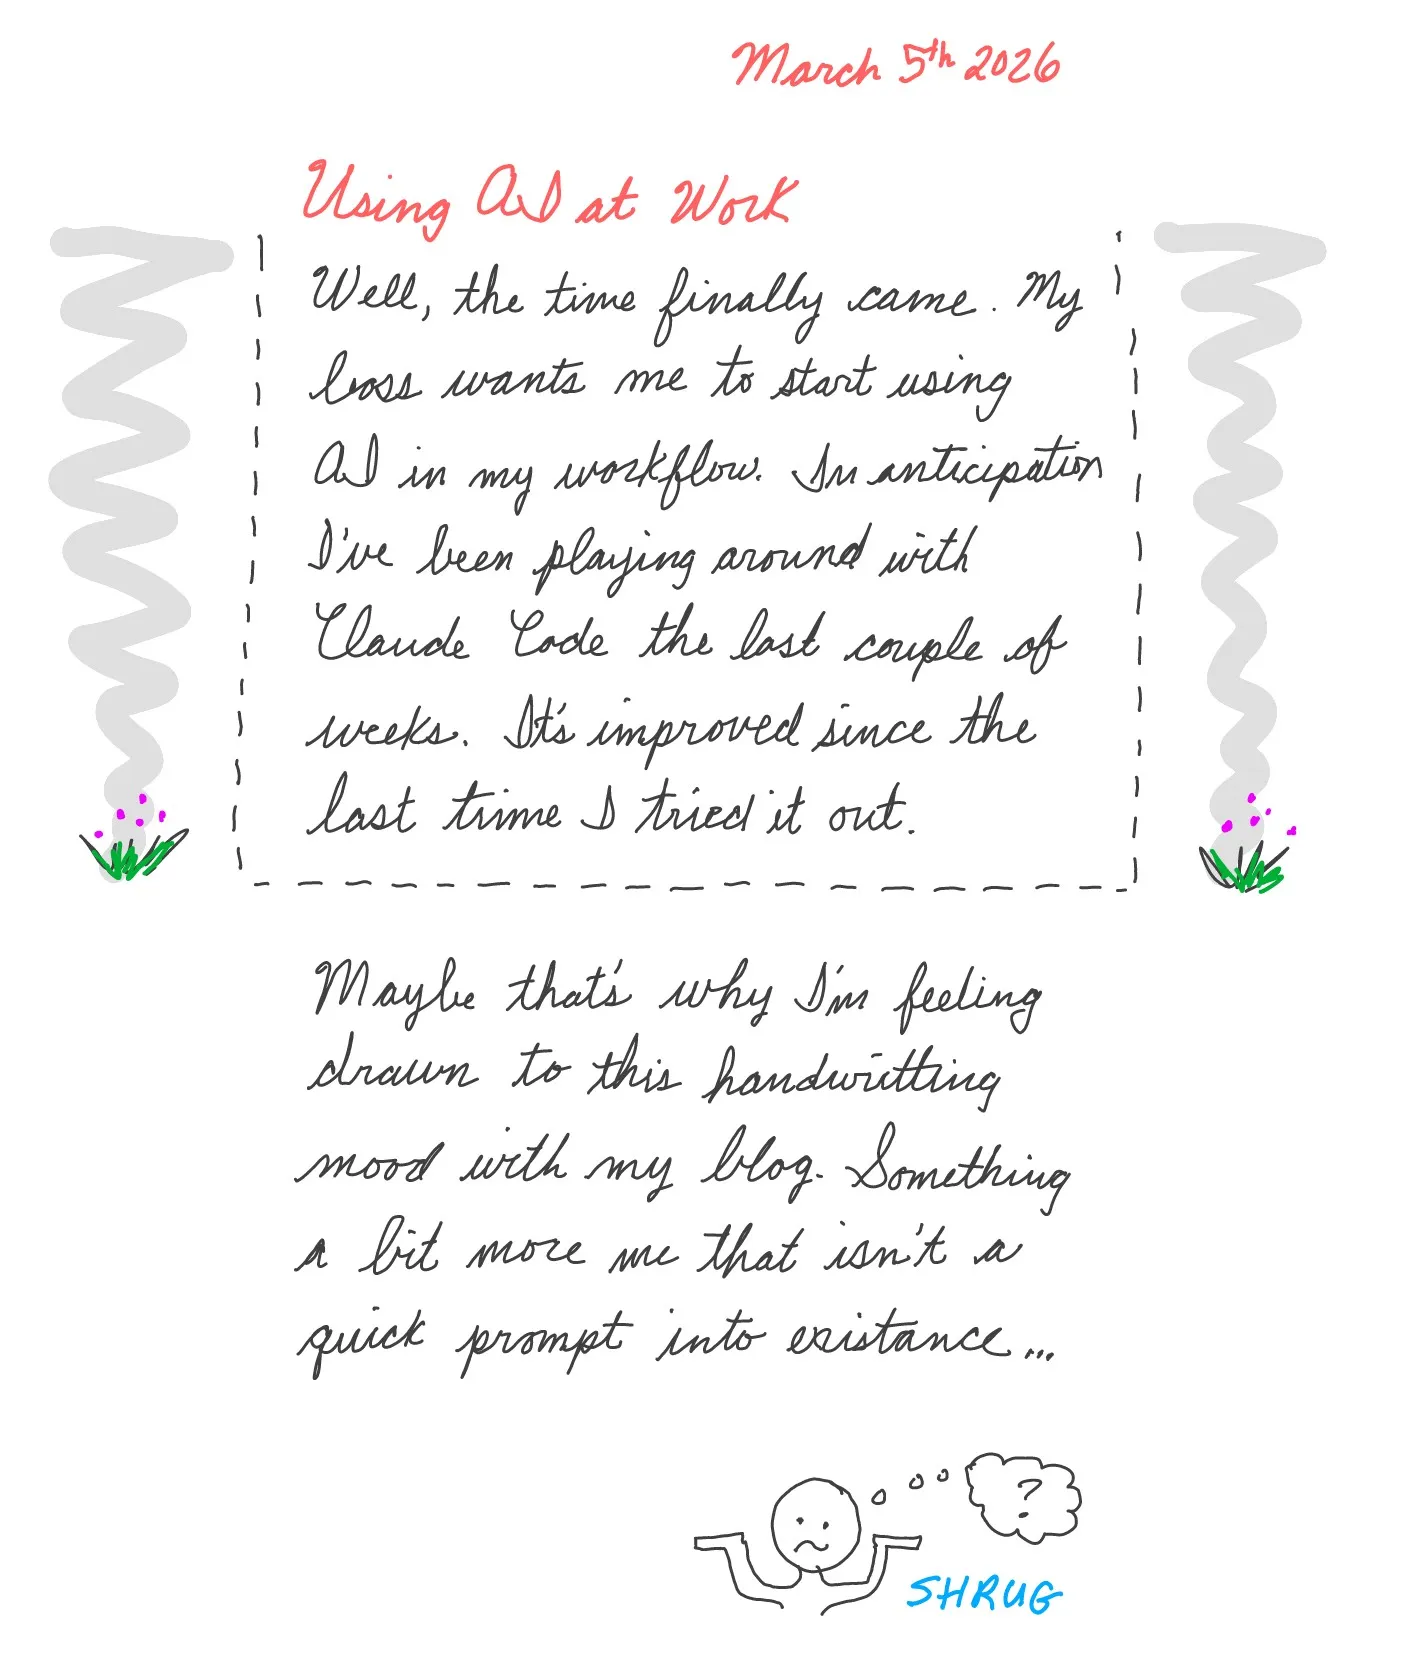 March 5th 2026
Using AI at Work
Well, the time finally came. My
boss wants me to start using
AI in my workflow. In anticipation
I've been playing around with
Claude Code the last couple of
weeks. It's improved since the
last time I tried it out.
Maybe that's why I'm feeling
drawn to this handwritting
mood with my blog. Something
a bit more me that isn't a
quick prompt into existance...
?
SHRUG